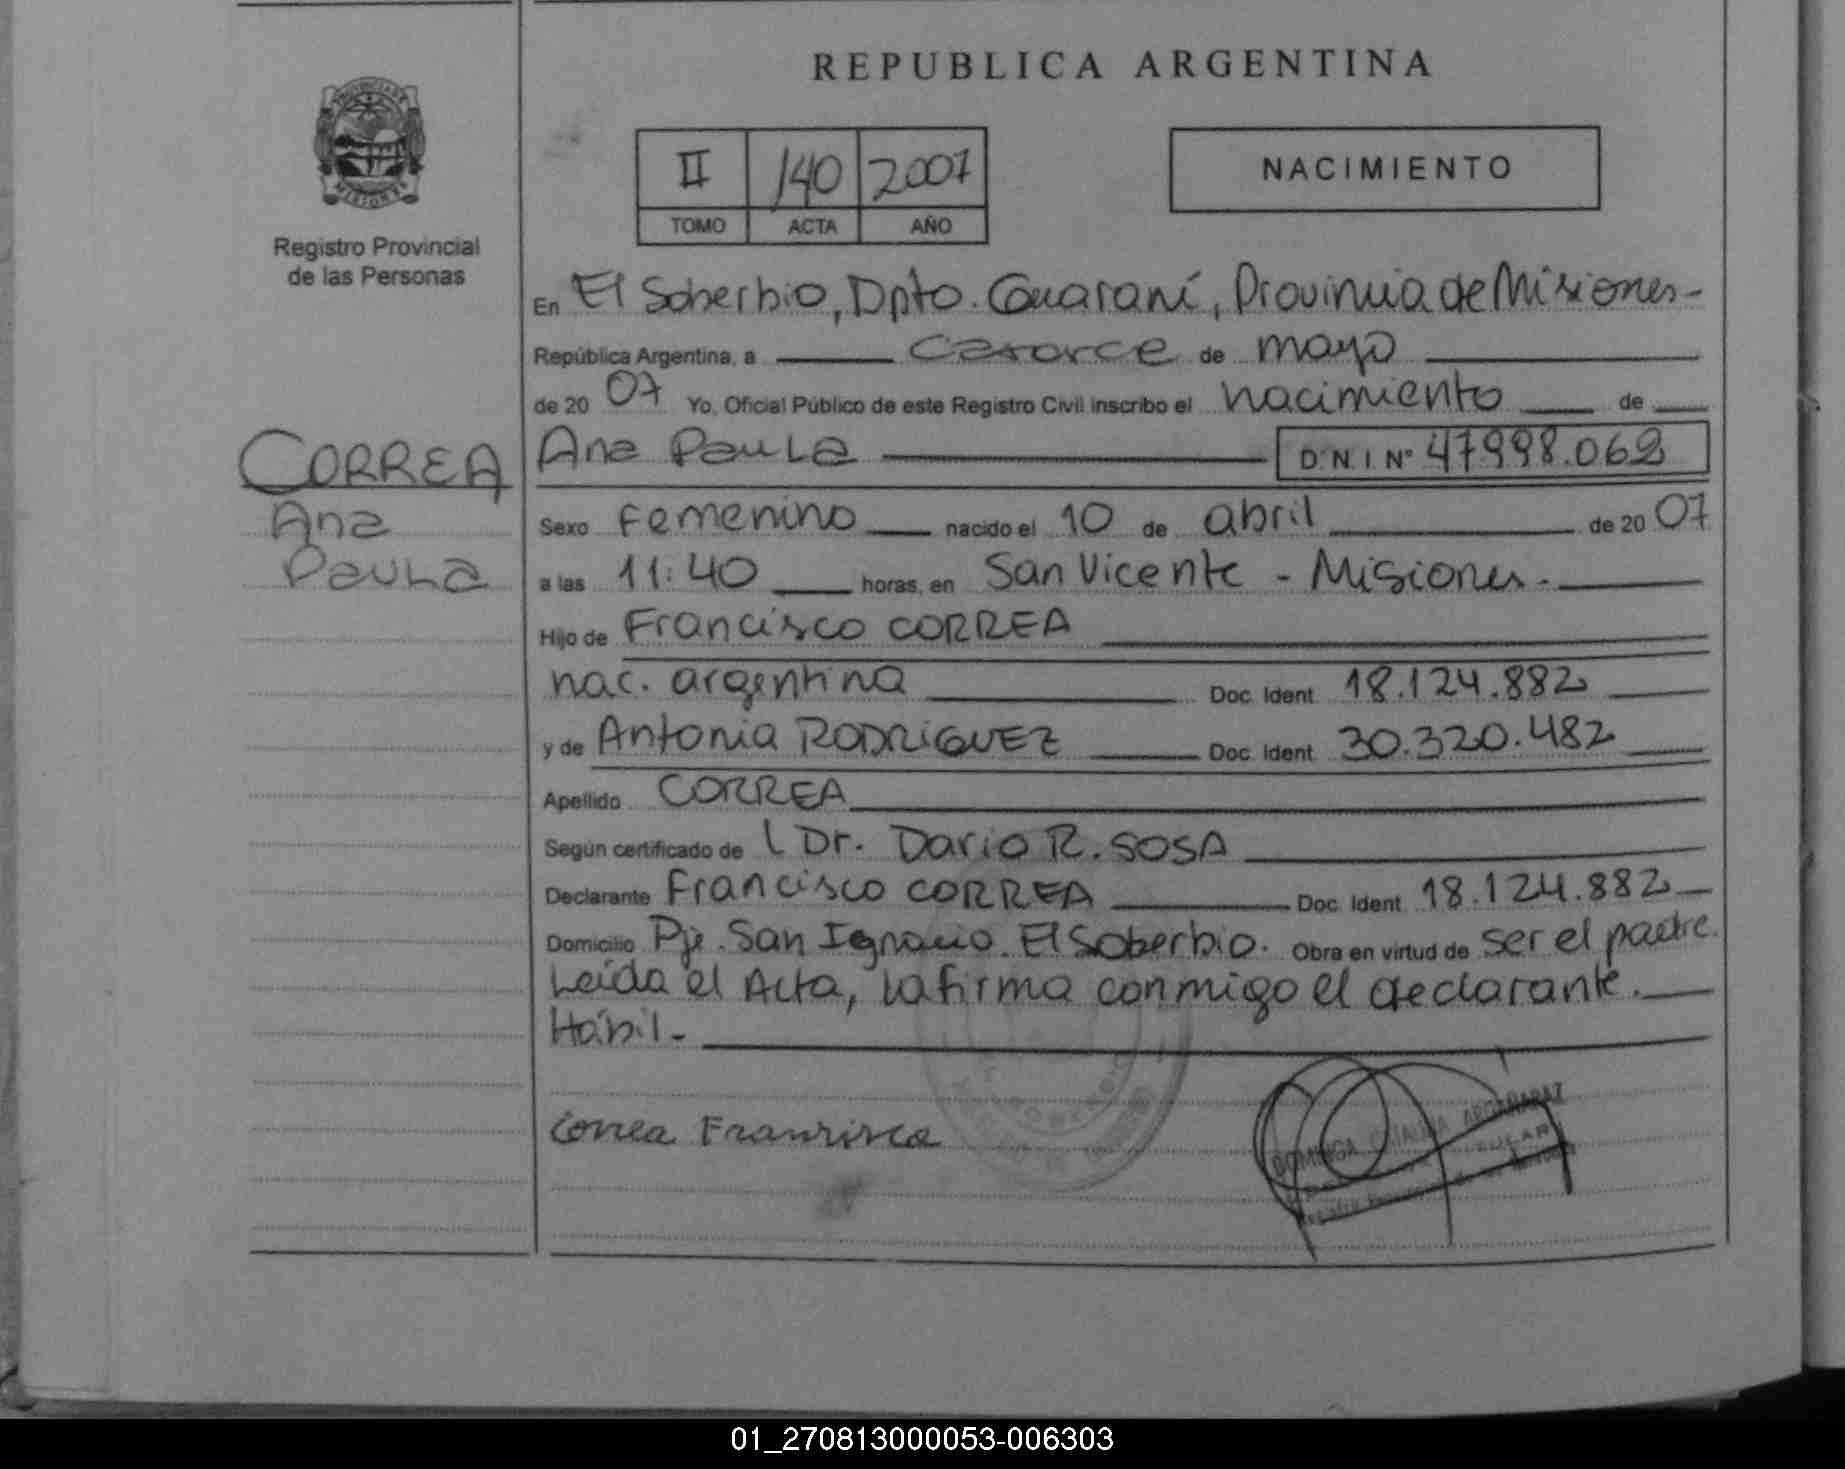 REPUBLICA ARGENTINA
PROVINCIA DE
MISIONES
Registro Provincial
de las Personas
II 140 2007
TOMO ACTA AÑO
NACIMIENTO
En El Soberbio, Dpto. Guaraní, Provincia de Misiones-
República Argentina, a catorce de mayo
de 20 07 Yo, Oficial Público de este Registro Civil inscribo el nacimiento de
CORREA
Ana
Paula
Ana Paula D.N.I Nº 47998.062
Sexo Femenino nacido el 10 de abril de 20 07
a las 11:40 horas, en San Vicente - Misiones.
Hijo de Francisco CORREA
nac. argentina Doc. Ident. 18.124.882
y de Antonia RODRIGUEZ Doc. Ident. 30.320.482
Apellido CORREA
Según certificado de l Dr. Dario R. SOSA
Declarante Francisco CORREA Doc. Ident. 18.124.882
Domicilio Pje. San Ignacio. El Soberbio. Obra en virtud de ser el padre.
Leída el Acta, la firma conmigo el declarante.
Hábil-
Correa Francisco
DOMINGA CATALINA
01_270813000053-006303